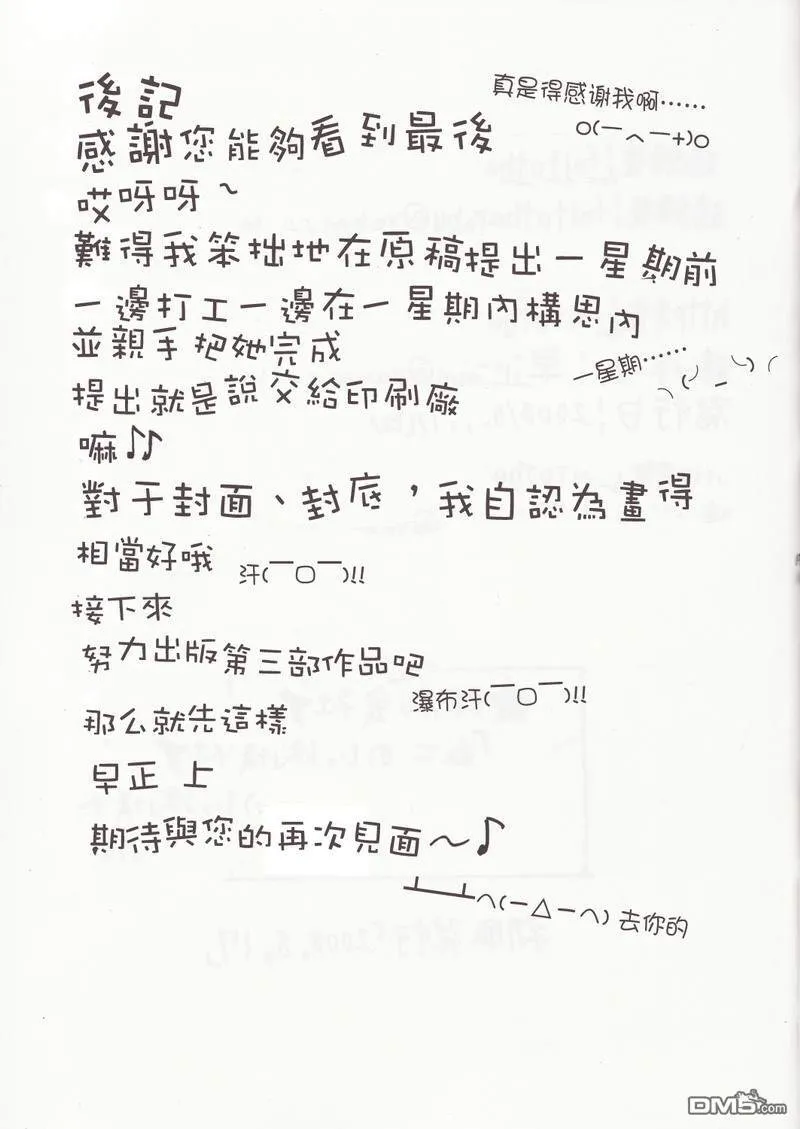 後記
真是得感谢我啊……
o(一へ一+)o
感謝您能夠看到最後
哎呀呀～
難得我笨拙地在原稿提出一星期前
一邊打工一邊在一星期內構思內
並親手把她完成
一星期……
╮(╯_╰)╭
提出就是說交給印刷廠
嘛♪♪
對于封面、封底，我自認為畫得
相當好哦
汗(￣□￣)!!
接下來
努力出版第三部作品吧
瀑布汗(￣□￣)!!
那么就先這樣
早正 上
期待與您的再次見面～♪
┻━┻ヘ(一△一ヘ) 去你的
DM5.com